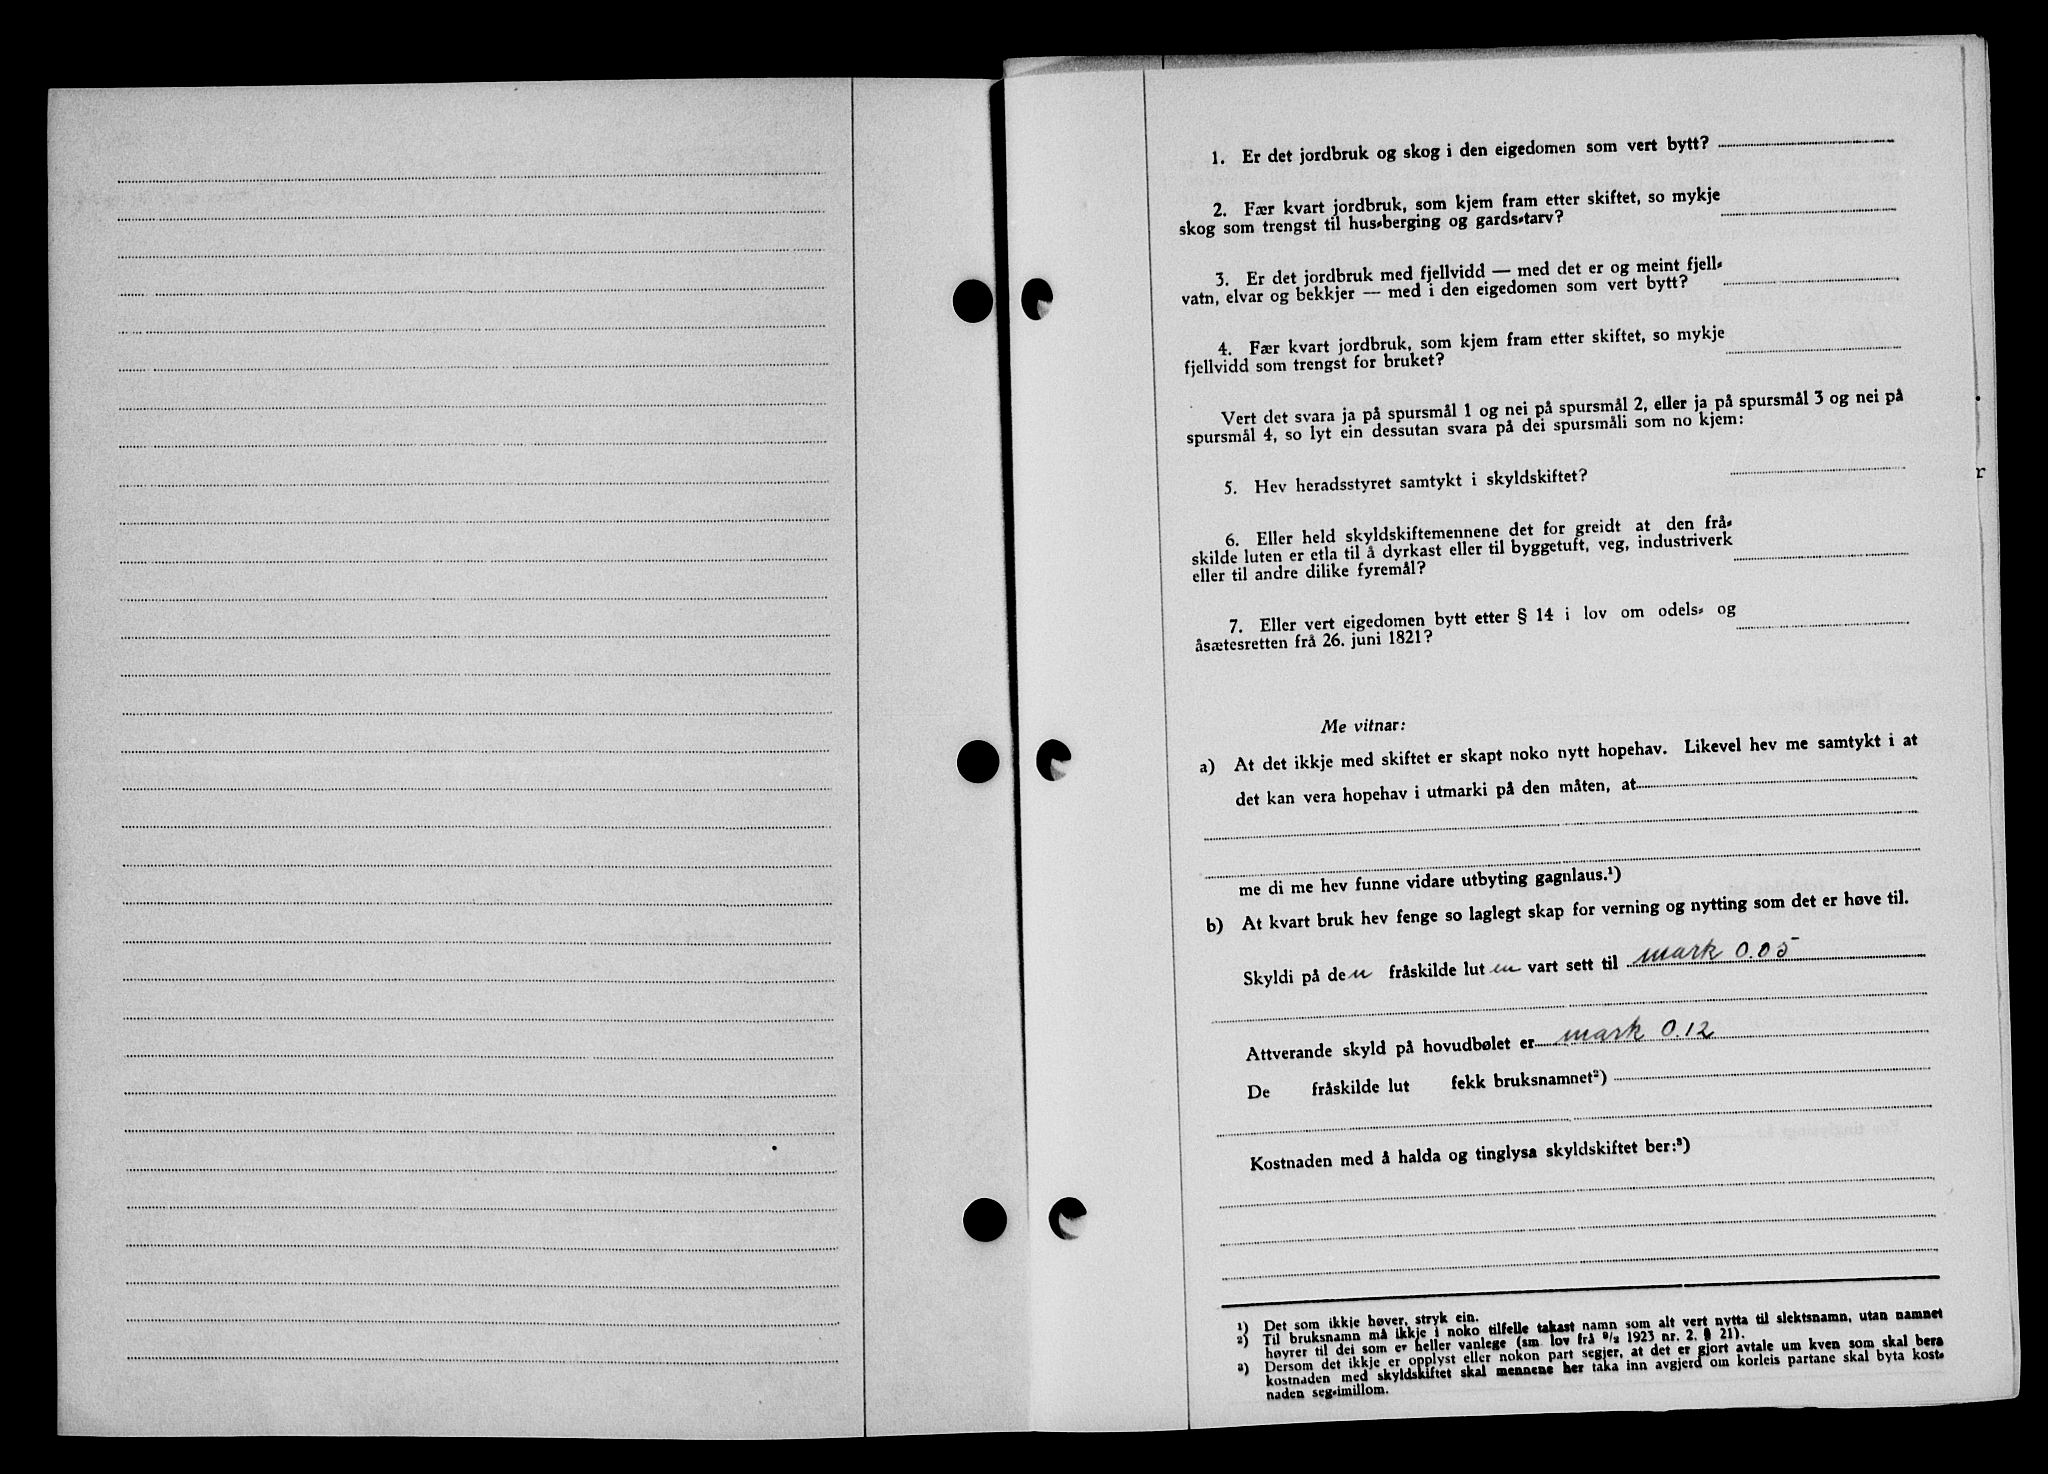 1. Er det jordbruk og skog i den eigedomen som vert bytt?
2. Fær kvart jordbruk, som kjem fram etter skiftet, so mykje
skog som trengst til hus-berging og gards-tarv?
3. Er det jordbruk med fjellvidd — med det er og meint fjell-
vatn, elvar og bekkjer — med i den eigedomen som vert bytt?
4. Fær kvart jordbruk, som kjem fram etter skiftet, so mykje
fjellvidd som trengst for bruket?
Vert det svara ja på spursmål 1 og nei på spursmål 2, eller ja på spursmål 3 og nei på
spursmål 4, so lyt ein dessutan svara på dei spursmåli som no kjem:
5. Hev heradsstyret samtykt i skyldskiftet?
6. Eller held skyldskiftemennene det for greidt at den frå-
skilde luten er etla til å dyrkast eller til byggetuft, veg, industriverk
eller til andre dilike fyremål?
7. Eller vert eigedomen bytt etter § 14 i lov om odels- og
åsætesretten frå 26. juni 1821?
Me vitnar:
a) At det ikkje med skiftet er skapt noko nytt hopehav. Likevel hev me samtykt i at
det kan vera hopehav i utmarki på den måten, at
me di me hev funne vidare utbyting gagnlaus.¹)
b) At kvart bruk hev fenge so laglegt skap for verning og nytting som det er høve til.
Skyldi på den fråskilde luten vart sett til mark 0.05
Attverande skyld på hovudbølet er mark 0.12
De fråskilde lut fekk bruksnamnet²)
Kostnaden med å halda og tinglysa skyldskiftet ber:³)
¹) Det som ikkje høver, stryk ein.
²) Til bruksnamn må ikkje i noko tilfelle takast namn som alt vert nytta til slektsnamn, utan namnet
høyrer til dei som er heller vanlege (sm. lov frå ⁹/₂ 1923 nr. 2. § 21).
³) Dersom det ikkje er opplyst eller nokon part segjer, at det er gjort avtale um kven som skal bera
kostnaden med skyldskiftet skal mennene her taka inn avgjerd om korleis partane skal byta kost-
naden seg-imillom.